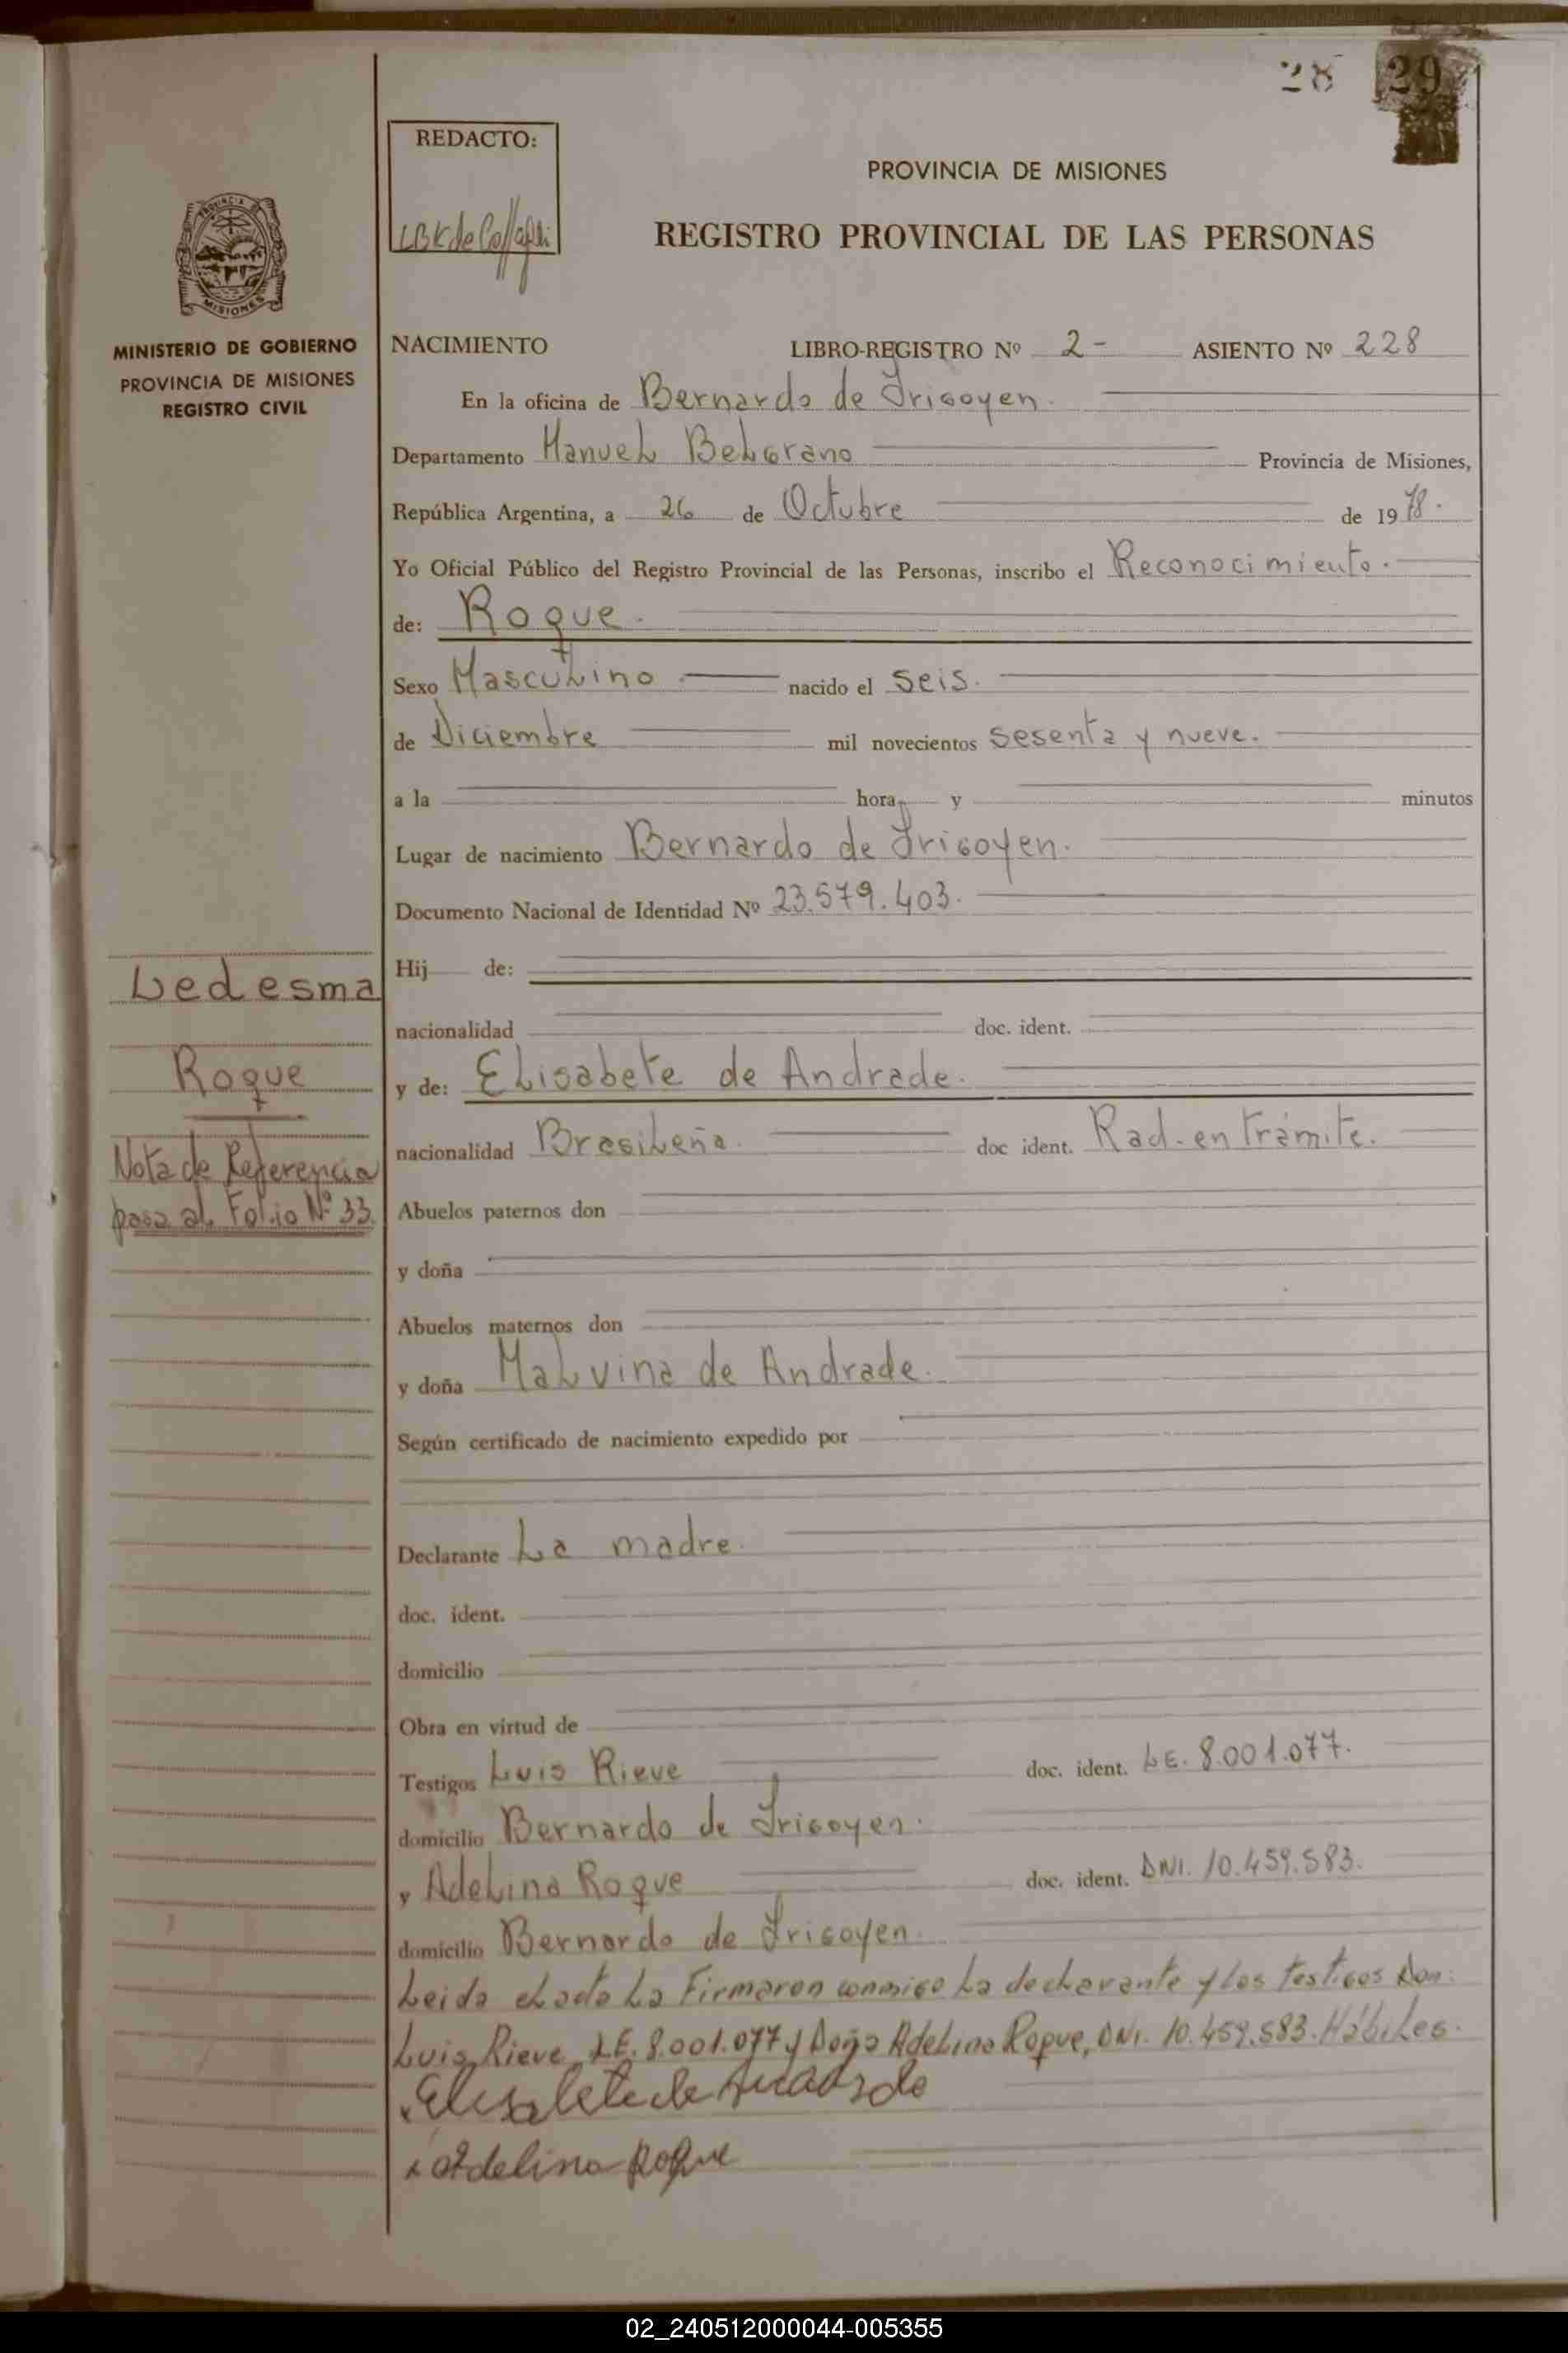 28 29
REDACTO:
PROVINCIA DE MISIONES
REGISTRO PROVINCIAL DE LAS PERSONAS
PROVINCIA DE
MISIONES
MINISTERIO DE GOBIERNO
PROVINCIA DE MISIONES
REGISTRO CIVIL
NACIMIENTO LIBRO-REGISTRO Nº 2- ASIENTO Nº 228
En la oficina de Bernardo de Irigoyen.
Departamento Manuel Belgrano Provincia de Misiones,
República Argentina, a 26 de Octubre de 1978.
Yo Oficial Público del Registro Provincial de las Personas, inscribo el Reconocimiento.
de: Roque.
Sexo Masculino nacido el seis.
de Diciembre mil novecientos sesenta y nueve.
a la hora y minutos
Lugar de nacimiento Bernardo de Irigoyen.
Documento Nacional de Identidad Nº 23.579.403.
Hij de:
nacionalidad doc. ident.
y de: Elisabete de Andrade.
nacionalidad Brasileña. doc ident. Rad. en trámite.
Abuelos paternos don
y doña
Abuelos maternos don
y doña Malvina de Andrade.
Según certificado de nacimiento expedido por
Declarante La madre.
doc. ident.
domicilio
Obra en virtud de
Testigos Luis Rieve doc. ident. LE. 8.001.077.
domicilio Bernardo de Irigoyen.
y Adelina Roque doc. ident. DNI. 10.459.583.
domicilio Bernardo de Irigoyen.
Leida el acta la Firmaron conmigo la declarante y los testigos Don:
Luis Rieve, LE. 8.001.077 y Doña Adelina Roque, DNI. 10.459.583. Hábiles.
Elisabete de Andrade
Adelina Roque
Ledesma
Roque
Nota de Referencia
pasa al Folio Nº 33.
02_240512000044-005355